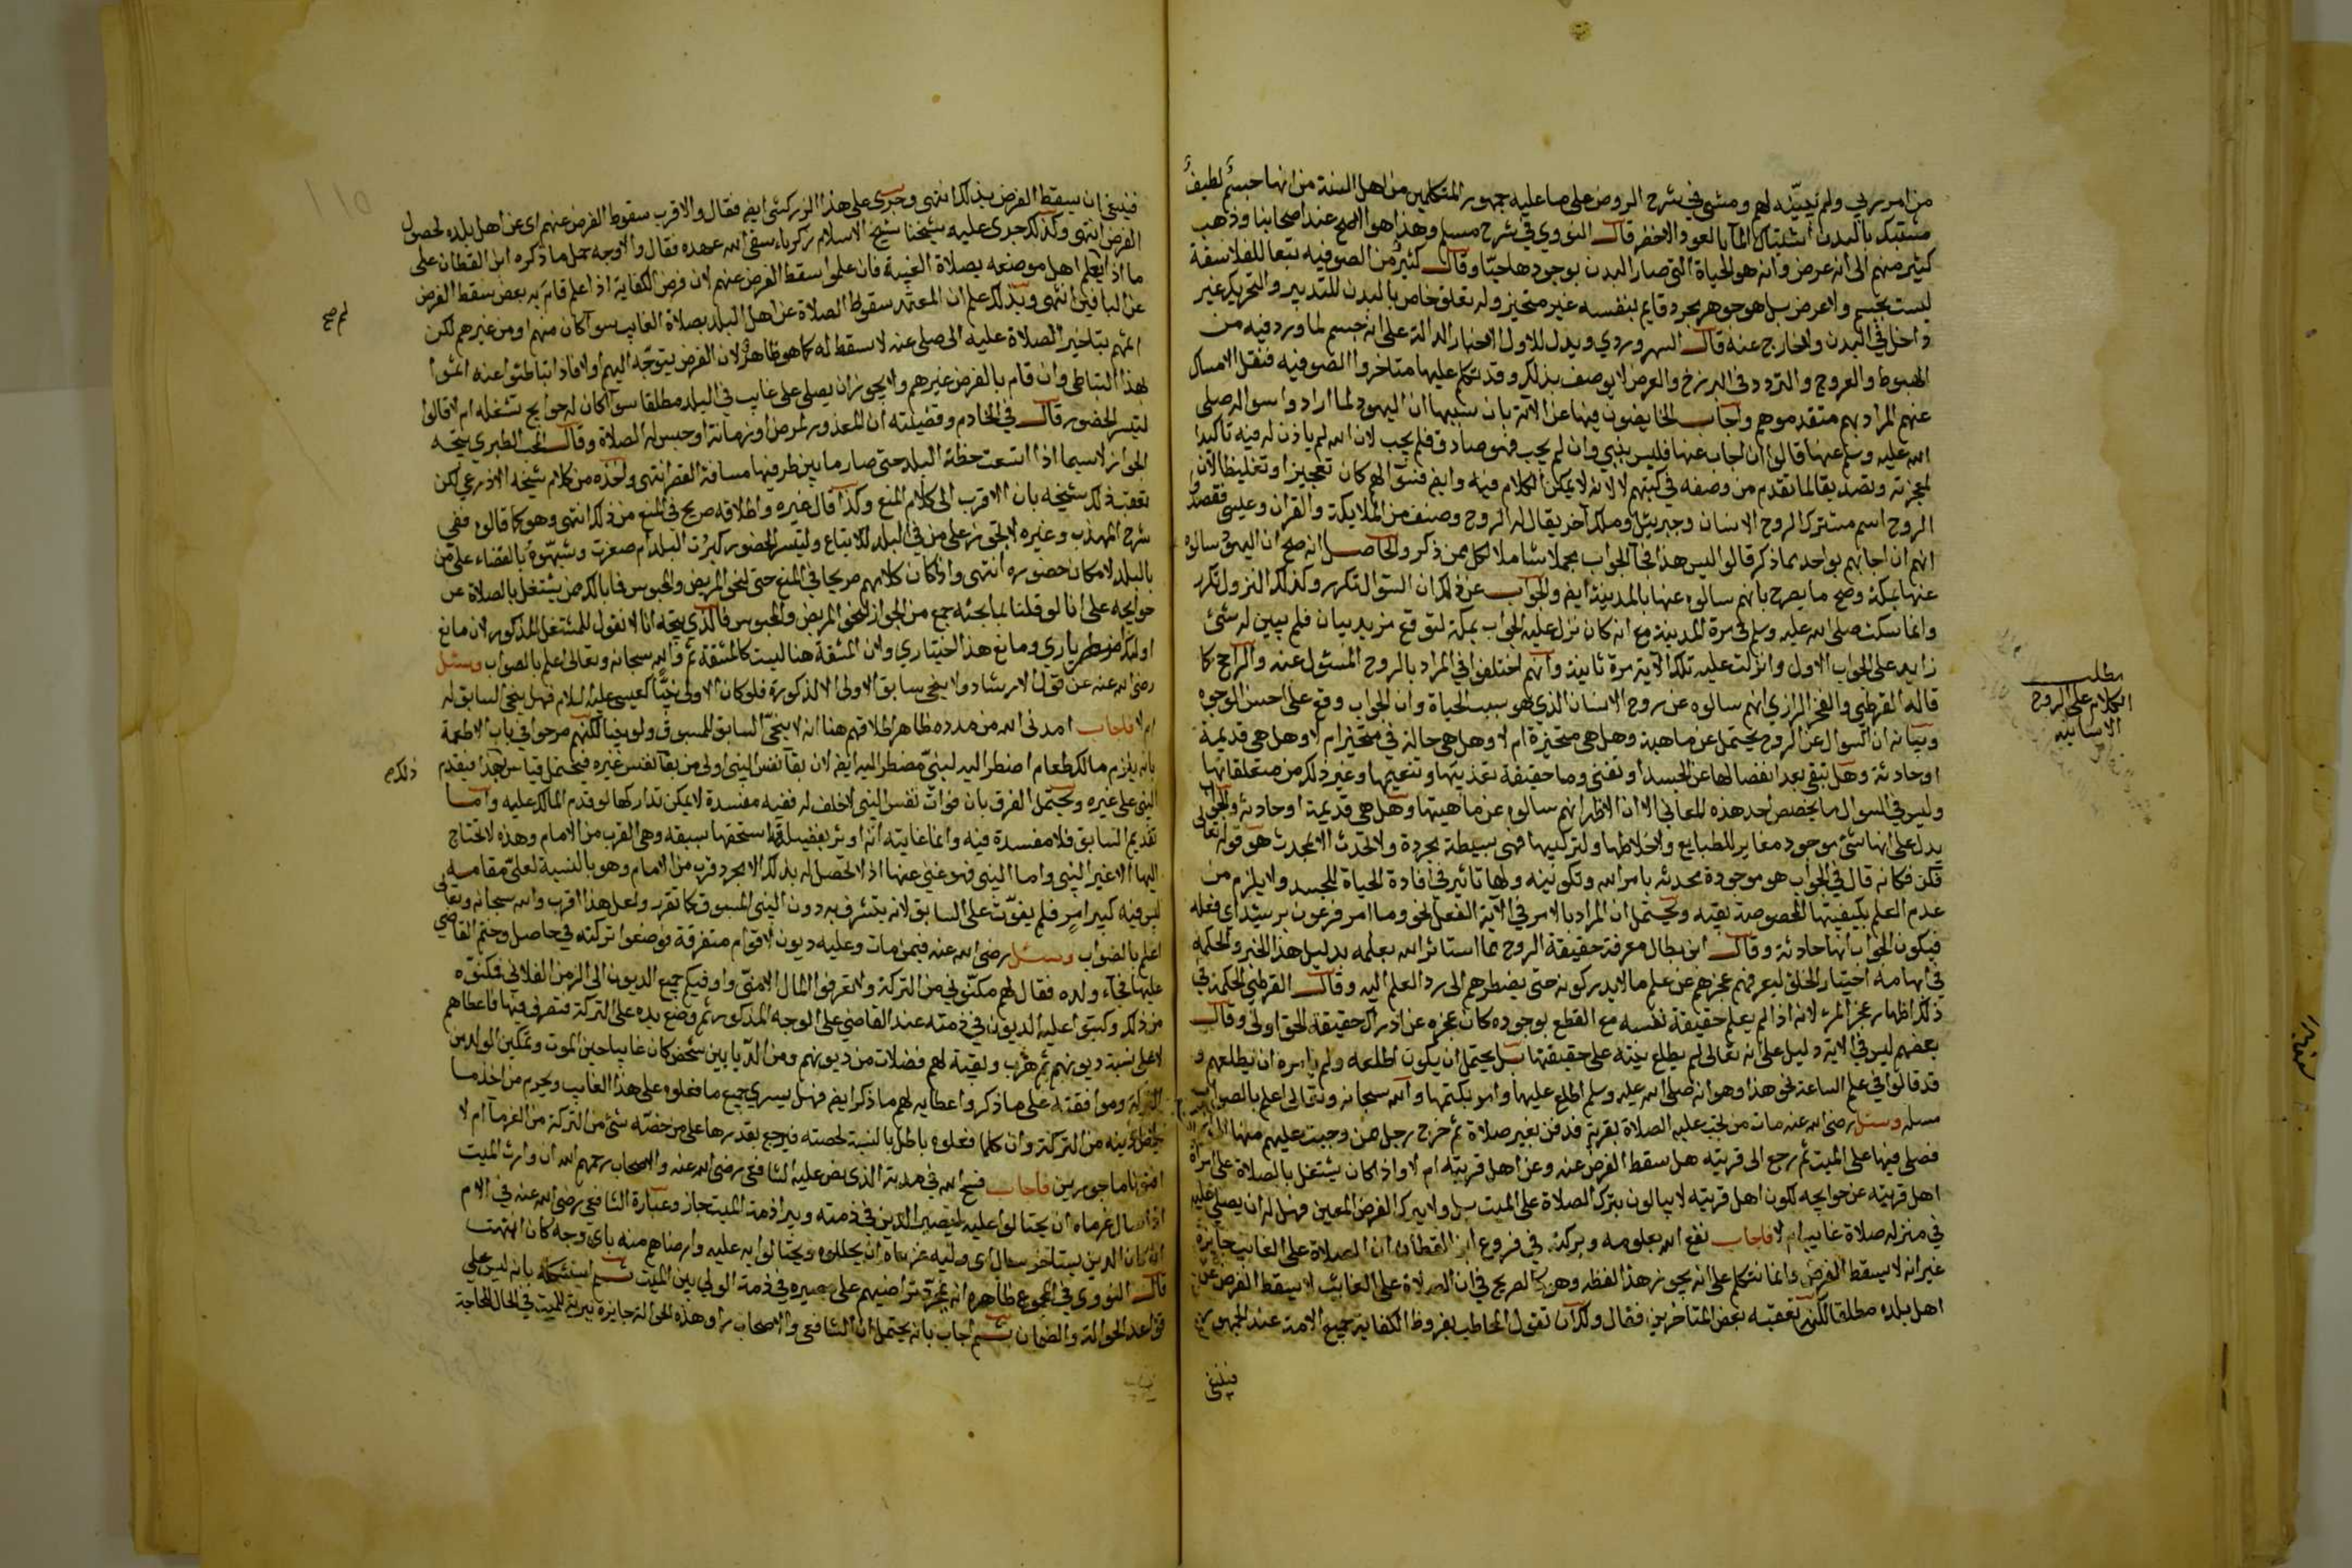 من امر ربي ولم تبيّنه لهم ومشى في شرح الروض على ما عليه جمهور المتكلمين من اهل السنة من انها جسمٌ لطيفٌ
مشتبك بالبدن اشتباك المآ بالعود الاخضر قال النووي في شرح مسلم وهذا هو الاصح عند اصحابنا وذهب
كثير منهم الى انه عرض وانه هو الحياة التي صار البدن بوجودها حيّا وقال كثيرٌ من الصوفيه تبعا للفلاسفة
ليست بجسم ولا عرض بل هو جوهر مجرد قايم بنفسه غير متحيز وله تعلق خاص بالبدن للتدبير والتحريك غير
داخل في البدن ولا خارج عنه قال السهروردي ويدل للاول الاخبار الدالة على انه جسم لما ورد فيه من
الهبوط والعروج والتردد في البرزخ والعرض لا يوصف بذلك وقد تكلم عليها متاخروا الصوفيه فنقل الامساك
عنهم المراد بهم متقدموهم واجاب الخايضون فيها عن الآية بان سببها ان اليهود لما ارادوا سواله صلى
الله عليه وسلم عنها قالوا ان اجاب عنها فليس بنبي وان لم يجب فهو صادق فلم يجب لان الله لم ياذن له فيه تاكيدا
لمعجزته وتصديقا لما تقدم من وصفه في كتبهم لا لانه لا يمكن الكلام فيه وايض فسؤالهم كان تعجيزا وتغليظا لان
الروح اسم مشترك لروح الانسان وجبريل وملك آخر يقال له الروح وصنف من الملايكة والقران وعيسى فقصدوا
انه ان اجابهم بواحد مما ذكر قالوا ليس هذا فجآ الجواب مجملا شاملا لكل ممن ذكر والحاصل انه صح ان اليهود سالوه
عنها بمكة وصح ما يصرح بانهم سالوه عنها بالمدينة ايض والجواب عن ذلك ان السوال تكرر وكذلك النزول تكرر
وانما سكت صلى الله عليه وسلم في مرة المدينة مع انه كان نزل عليه الجواب بمكة لتوقع مزيد بيان فلم يبين له شئ
زايد على الجواب الاول وانزلت عليه تلك الآية مرة ثانية وانهم اختلفوا في المراد بالروح المسئول عنه والراجح كما
قاله القرطبي والفخر الرازي انهم سالوه عن روح الانسان الذي هو سبب الحياة وان الجواب وقع على احسن الوجوه
وبيانه ان السوال عن الروح يحتمل عن ماهيته وهل هي متحيزة ام لا وهل هي حالة في متحيز ام لا وهل هي قديمة
او حادثة وهل تبقى بعد انفصالها عن الجسد او تفنى وما حقيقة تعذيبها وتنعيمها وغير ذلك من متعلقاتها
وليس في السوال ما يخصص احد هذه المعاني الا ان الاظهر انهم سالوه عن ماهيتها وهل هي قديمة او حادثة والجواب
يدل على انها شئ موجود مغاير للطبايع والاخلاط لها ولتركيبها فهي بسيطة مجردة ولا تحدث الا بمحدث هو قوله تعالى
فكن فكانه قال في الجواب هو موجودة محدثه بامر الله وتكوينه ولها تاثير في افادة الحياة للجسد ولا يلزم من
عدم العلم بكيفيتها المخصوصة نفيه ويحتمل ان المراد بالامر في الآية الفعل نحو وما امر فرعون برشيد اي فعله
فيكون الجواب انها حادثة وقال ابن بطال معرفة حقيقة الروح مما استاثر الله بعلمه بدليل هذا الخبر والحكمة
في ابهامه اختبار الخلق ليعرفهم عجزهم عن علم ما لا يدركونه حتى يضطرهم الى رد العلم اليه وقال القرطبي الحكمة في
ذلك اظهار عجز المرء لانه اذا لم يعلم حقيقة نفسه مع القطع بوجوده كان عجزه عن ادراك حقيقة الحق اولى وقال
بعضهم ليس في الآية دليل على انه تعالى لم يطلع نبيه على حقيقتها بل يحتمل ان يكون اطلعه ولم يامره ان يطلعهم و
قد قالوا في علم الساعة نحو هذا وهو انه صلى الله عليه وسلم اطلع عليها وامر بكتمها والله سبحانه وتعالى اعلم بالصواب
مسله وسئل رضى الله عنه مات من تجب عليه الصلاة بقرية فدفن بغير صلاة ثم خرج رجل ممن وجبت عليهم منها
فصلى فيها على الميت ثم رجع الى قريته هل سقط الفرض عنه وعن اهل قريته ام لا واذا كان يشتغل بالصلاة على
اهل قريته عن حوايجه لكون اهل قريته لا يبالون بترك الصلاة على الميت بل ولا يترك الفرض المعين فهل له ان يصلي عليه
في منزله صلاة غايب ام لا فاجاب نفع الله بعلومه وبركته في فروع ابن القطان ان الصلاة على الغايب جايزة
غير انه لا يسقط الفرض وانما نتكلم على انه يجوز هذا لفظه وهو كالصريح في ان الصلاة على الغائب لا يسقط الفرض عن
اهل بلده مطلقا لكن تعقبه بعض المتاخرين فقال ولك ان تقول المخاطب بفروض الكفاية جميع الامة عند الجمهور
فينبغي
مطلب
الكلام على الروح
الانسانيه
فينبغي ان يسقط الفرض بذلك انتهى وجرى على هذا الزركشي ايض فقال والاقرب سقوط الفرض عنهم اى عن اهل بلده لحصول
الفرض انتهى وكذلك جرى عليه شيخنا شيخ الاسلام زكرياء سقى الله عهده فقال والاوجه حمل ما ذكره ابن القطان على
ما اذا لم يعلم اهل موضعه بصلاة الغيبة فان علموا سقط الفرض عنهم لان فرض الكفاية اذا علم قام به بعض سقط الفرض
عن الباقين انتهى وبذلك علم ان المعتمد سقوط الصلاة عن اهل البلد بصلاة الغايب سوآ كان منهم او من غيرهم لكن
اثمهم بتاخير الصلاة عليه الى صلى عنه لا سقط له كما هو ظاهر لان الفرض يتوجه اليهم اولا فاذا تباطئوا عنه اثموا
بهذا التباطى وان قام بالفرض غيرهم ولا يجوز ان يصلى على غايب في البلد مطلقا سوآ كان له حوايج تشغله ام لا قالوا
لتيسر الحضور قال في الخادم وقضيته ان المعذور لمرض او زمانة او حبس له الصلاة وقال المحب الطبري يتجه
الجواز لاسيما اذا اتسعت خطة البلد حتى صار ما بين طرفيها مسافة القصر انتهى واخذه من كلام شيخه الاذرعي لكن
تعقب ذلك شيخه بان الاقرب الى كلامهم المنع وكذا قال غيره واطلاقه صريح في المنع من ذلك انتهى وهو كما قالوه ففي
شرح المهذب وغيره لا تجوز على من في البلد للاتباع ولتيسر الحضور كبرت البلد ام صغرت وشبهوه بالقضاء على من
بالبلد لامكان حضوره انتهى واذا كان كلامهم صريحا في المنع حتى لنحو المريض والمحبوس فما بالك بمن يشتغل بالصلاة عن
حوايجه على انا لو قلنا بما بحثه جمع من الجواز لنحو المريض والمحبوس فالذي يتجه انا لا نقول للمشتغل المذكور لان مانع
اولئك اضطراري ومانع هذا اختياري ولان المشقة هنا ليست كالمشقة ثم والله سبحانه وتعالى اعلم بالصواب وسئل
رضى الله عنه عن قول الارشاد ولا ينحى سابق الاولى الا لذكورة فلو كان الاولى نبيًّا كعيسى عليه السلام فهل ينحى السابق له
ام لا فاجاب امدنى الله من مدده ظاهر اطلاقهم هنا انه لا ينحى السابق للمسبوق ولو نبيا لكنهم صرحوا في باب الاطعمة
بانه يلزم مالك طعام اضطر اليه لنبيّ مضطر اليه ايض لان بقآ نفس النبى اولى من بقآ نفس غيره فيحتمل قياس هذا فيقدم
النبى على غيره ويحتمل الفرق بان فوات نفس النبى لا خلف له ففيه مفسدة لا يمكن تداركها لو قدم المالك عليه واما
تقديم السابق فلا مفسدة فيه وانما غايته انه اوثر بفضيلة استحقها بسبقه وهى القرب من الامام وهذه لا تحتاج
اليها الا غير النبى واما النبى فهو غني عنها اذ لا تحصل له بذلك الا مجرد قرب من الامام وهو بالنسبة لعلىّ مقامه
ليس فيه كبير امرٍ فلم يفوّت على السابق لانه يتشرف به دون النبى المسبوق كما تقرر ولعل هذا اقرب والله سبحانه وتعالى
اعلم بالصواب وسئل رضى الله عنه فيمن مات وعليه ديون لاقوام متفرقة فوضعوا تركته في حاصل وختم القاضي
عليها فجآء ولده فقال لهم مكّنوني من التركة ولا تعرفوا المال الا منّى واوفيكم جميع الديون الى الزمن الفلاني فمكنوه
من ذلك وكتبوا عليه الديون في ذمته عند القاضي على الوجه المذكور ثم وضع يده على التركة فتصرف فيها فاعطاهم
لا على نسبة ديونهم ثم هرب وبقية لهم فضلات من ديونهم ومن الدّيانين شخص كان غايبا حين الموت وتمكين الولد من
التركة وموافقته على ما ذكر واعطايه لهم ما ذكر ايض فهل يسري جميع ما فعلوه على هذا الغايب ويحرم من اخذ ما
يخلص دينه من التركة وان كلما فعلوه باطل بالنسبة لحصته فيرجع بقدرها على من خصّه شئ من التركة من الغرمآ ام لا
افتونا ماجورين فاجاب فسح الله في مدته الذى نص عليه الشافعى رضى الله عنه والاصحاب رحمهم الله ان وارث الميت
اذا سال غرماه ان يحتالوا عليه ليصير الدين في ذمته وبرا ذمة الميت جاز وعبارة الشافعى رضى الله عنه في الام
ان كان الدين يستاخر سال اى وليه غرماه ان يحللوه ويحتالوا به عليه وارضاهم منه باى وجه كان انتهت
قال النووى في المجموع ظاهره انه بمجرد تراضيهم على مصيره في ذمة الولى يبرئ الميت ثم استشكله بانه ليس على
قواعد الحوالة والضمان ثم اجاب بانه يحتمل ان الشافعى والاصحاب راو هذه الحوالة جايزة مبرية للميت في الحال للحاجة
لم صح
ذلك ص